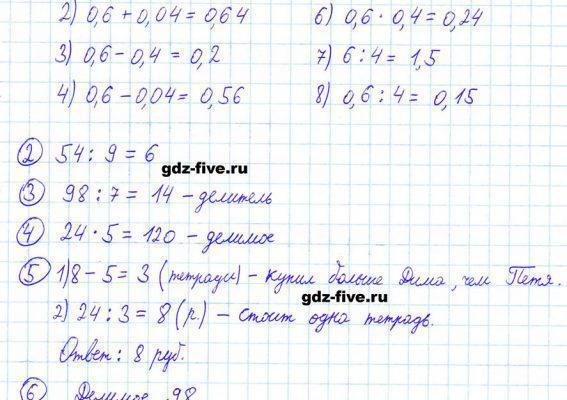 2) 0,6 + 0,04 = 0,64
6) 0,6 · 0,4 = 0,24
3) 0,6 - 0,4 = 0,2
7) 6 : 4 = 1,5
4) 0,6 - 0,04 = 0,56
8) 0,6 : 4 = 0,15
2 54 : 9 = 6
gdz-five.ru
3 98 : 7 = 14 - делитель
4 24 · 5 = 120 - делимое
5 1) 8 - 5 = 3 (тетради) - купил больше Дима, чем Петя.
gdz-five.ru
2) 24 : 3 = 8 (р.) - стоит одна тетрадь.
Ответ: 8 руб.
6 Делимое 98